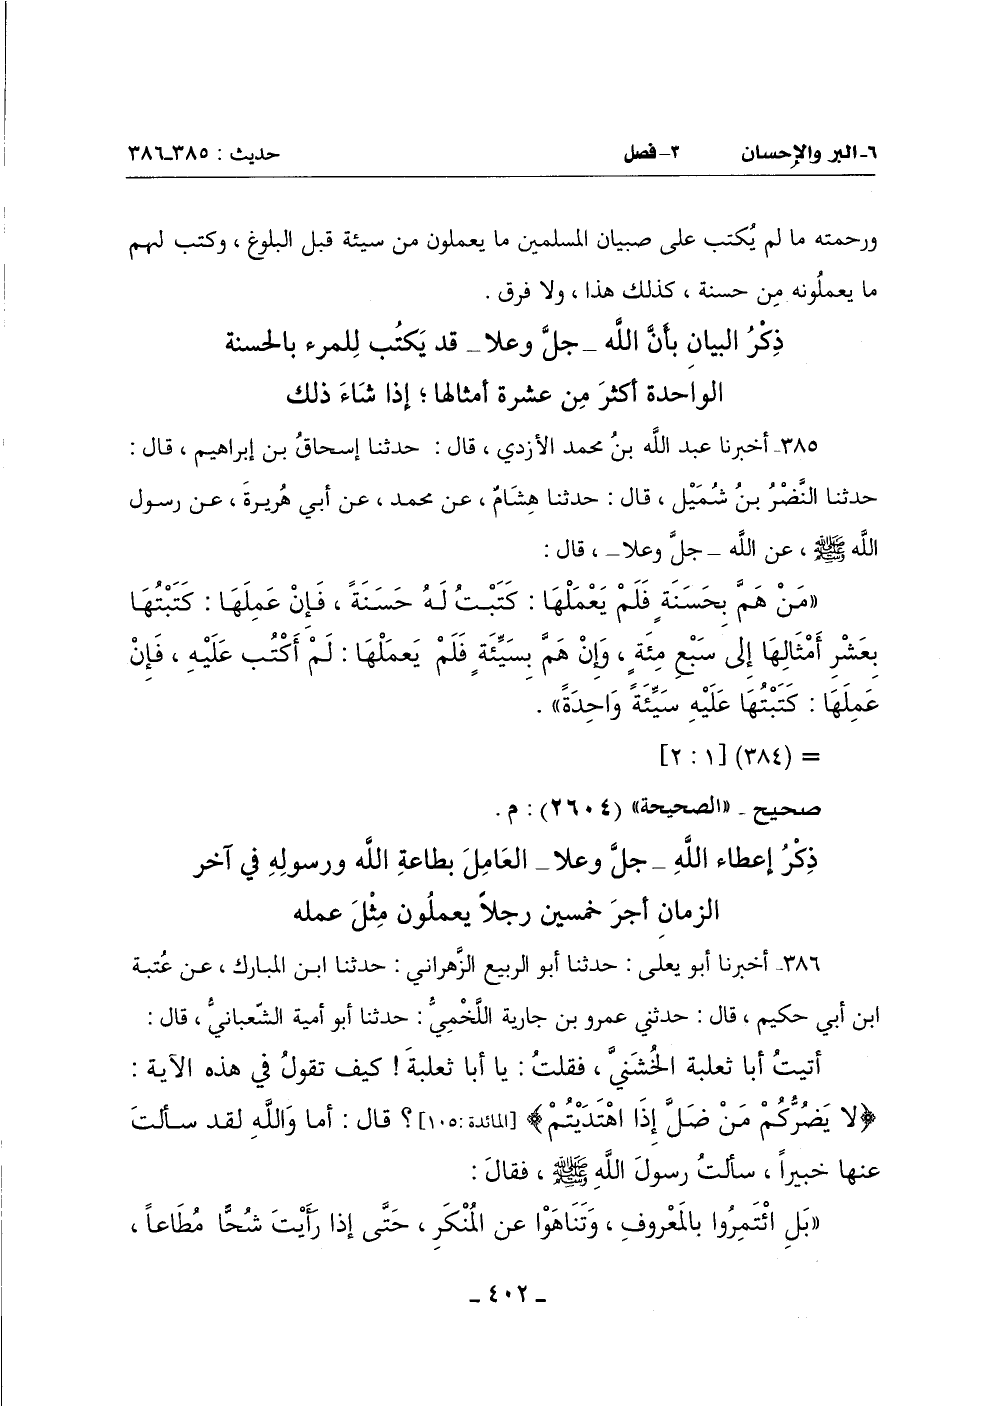 ٦ـ البر والإحسان ٢ـ فصل حديث : ٣٨٥ـ٣٨٦
ورحمته ما لم يُكتب على صبيان المسلمين ما يعملون من سيئة قبل البلوغ ، وكتب لهم
ما يعملُونه مِن حسنة ، كذلك هذا ، ولا فرق .
ذِكْرُ البيانِ بأنَّ اللَّه ـ جلَّ وعلا ـ قد يَكتُب لِلمرء بالحسنة
الواحدة أكثرَ مِن عشرة أمثالها ؛ إذا شَاءَ ذلك
٣٨٥ـ أخبرنا عبد اللَّه بنُ محمد الأزدي ، قال : حدثنا إسحاقُ بن إبراهيم ، قال :
حدثنا النَّضْرُ بنُ شُمَيْل ، قال : حدثنا هِشَامٌ ، عن محمد ، عن أبي هُريرةَ ، عن رسول
اللَّه ﷺ ، عن اللَّه ـ جلَّ وعلا ـ ، قال :
«مَنْ هَمَّ بِحَسَنَةٍ فَلَمْ يَعْمَلْهَا : كَتَبْتُ لَهُ حَسَنَةً ، فَإِنْ عَمِلَهَا : كَتَبْتُهَا
بِعَشْرِ أَمْثَالِهَا إِلى سَبْعِ مِئَةٍ ، وَإِنْ هَمَّ بِسَيِّئَةٍ فَلَمْ يَعمَلْهَا : لَمْ أَكْتُب عَلَيْهِ ، فَإِنْ
عَمِلَهَا : كَتَبْتُهَا عَلَيْهِ سَيِّئَةً وَاحِدَةً» .
= (٣٨٤) [١ : ٢]
صحيح ـ «الصحيحة» (٢٦٠٤) : م .
ذِكْرُ إعطاء اللَّهِ ـ جلَّ وعلا ـ العَامِلَ بطاعةِ اللَّه ورسولِهِ في آخر
الزمانِ أجرَ خمسين رجلاً يعملُون مِثْلَ عمله
٣٨٦ـ أخبرنا أبو يعلى : حدثنا أبو الربيع الزَّهراني : حدثنا ابن المبارك ، عن عُتبة
ابن أبي حكيم ، قال : حدثني عمرو بن جارية اللَّخْمِيُّ : حدثنا أبو أمية الشَّعبانيُّ ، قال :
أتيتُ أبا ثعلبة الخُشَنيَّ ، فقلتُ : يا أبا ثعلبةَ ! كيف تقولُ في هذه الآية :
﴿لا يَضُرُّكُمْ مَنْ ضَلَّ إِذَا اهْتَدَيْتُمْ﴾ [المائدة :١٠٥] ؟ قال : أما وَاللَّهِ لقد سألتَ
عنها خبيراً ، سألتُ رسولَ اللَّهِ ﷺ ، فقالَ :
«بَلِ ائْتَمِرُوا بالمَعْروفِ ، وَتَنَاهَوْا عن المُنْكَرِ ، حَتَّى إذا رَأَيْتَ شُحًّا مُطَاعاً ،
ـ ٤٠٢ ـ